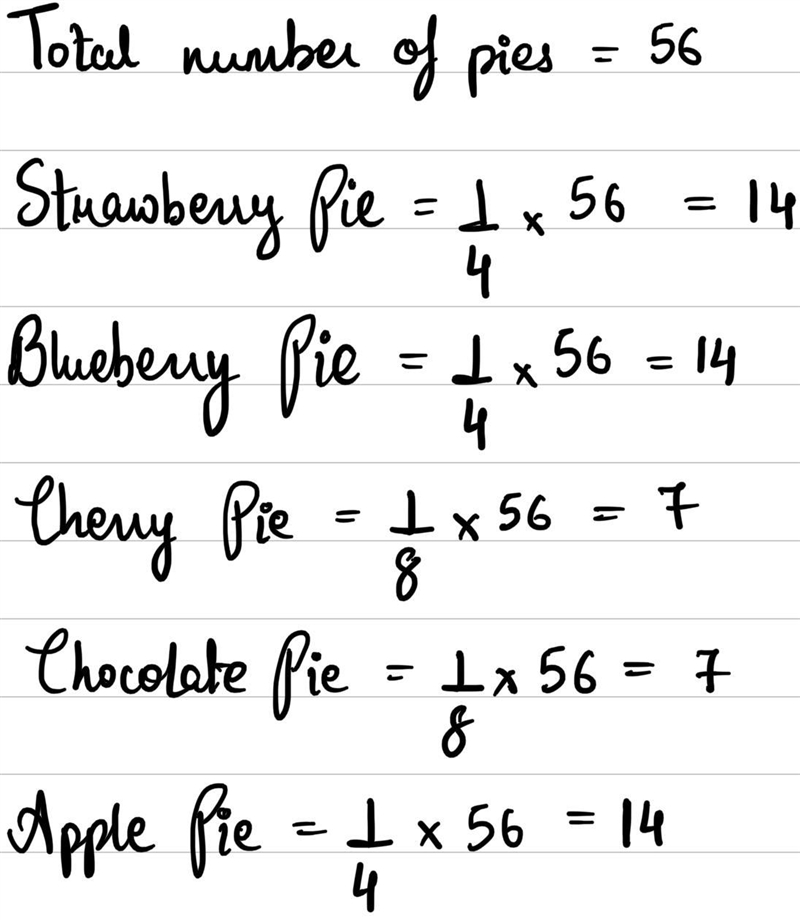 Total number of pies = 56
Strawberry Pie = 1/4 x 56 = 14
Blueberry Pie = 1/4 x 56 = 14
Cherry Pie = 1/8 x 56 = 7
Chocolate Pie = 1/8 x 56 = 7
Apple Pie = 1/4 x 56 = 14